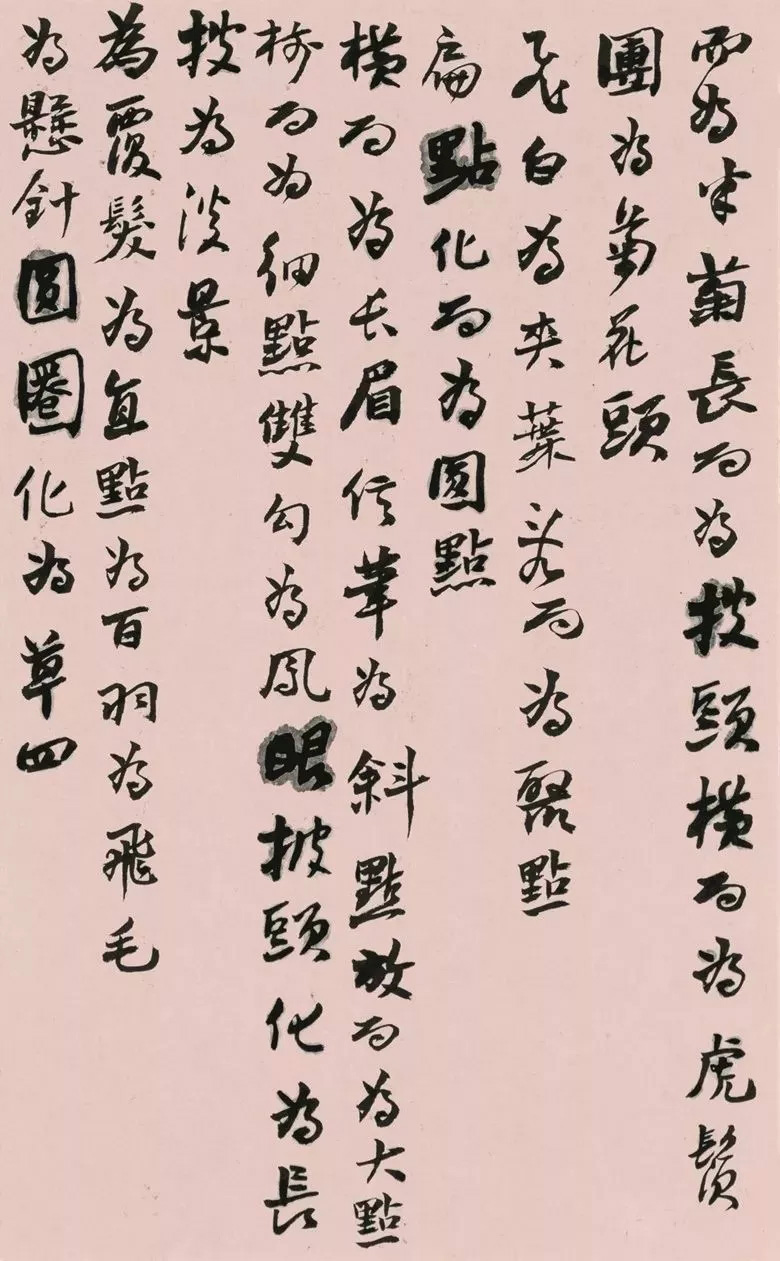 而為半菊長而為披頭橫而為虎鬚
團為菊花頭
飛白為夾葉說而為聚點
扁點化而為圓點
橫而為長眉信筆為斜點放而為大點
而為細點雙勾為鳳眼披頭化為長
披為淡景
為覆髮為直點為百羽為飛毛
為懸針圓圈化為草四